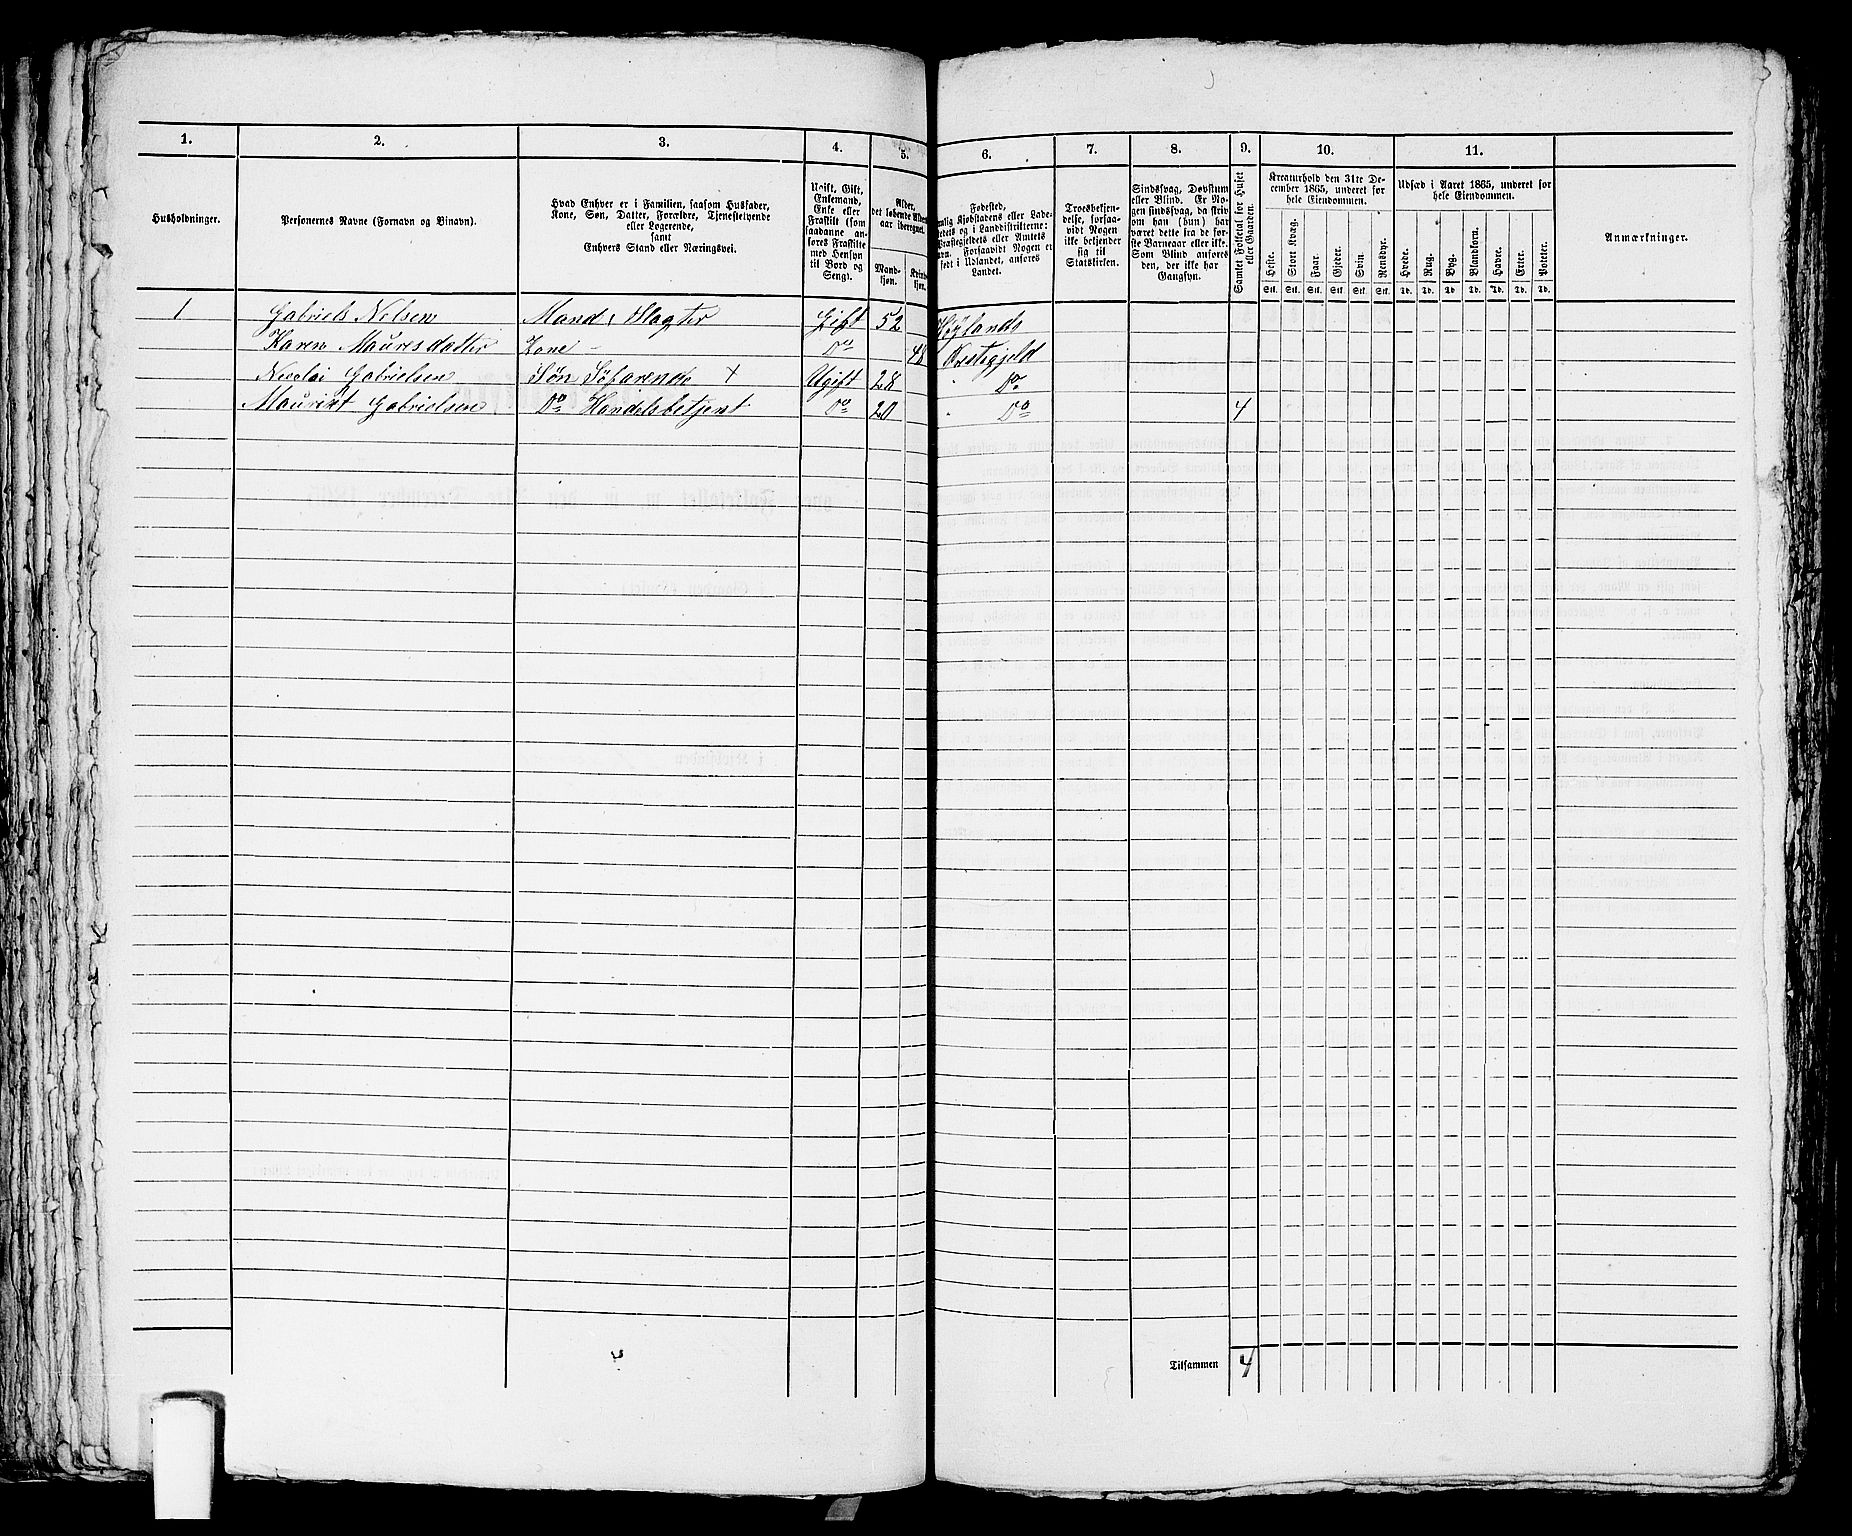 1. 2. 3. 4. 5. 6. 7. 8. 9. 10. 11.
Husholdninger.
Personernes Navne (Fornavn og Binavn).
Hvad Enhver er i Familien, saasom Husfader,
Kone, Søn, Datter, Forældre, Tjenestetyende
eller Logerende,
samt
Enhvers Stand eller Næringsvei.
Ugift, Gift,
Enkemand,
Enke eller
Fraskilt (som
saadanne an-
føres Fraskilte
med Hensyn
til Bord og
Seng).
Alder,
det løbende Alders-
aar iberegnet.
Mand-
kjøn.
Kvinde-
kjøn.
Fødested,
nemlig Kjøbstadens eller Lade-
stedets og i Landdistrikterne:
Præstegjeldets eller Amtets
Navn. Forsaavidt Nogen er
født i Udlandet, anføres
Landet.
Troesbekjen-
delse, forsaa-
vidt Nogen
ikke bekjender
sig til
Statskirken.
Sindssvag, Døvstum
eller Blind. Er No-
gen sindssvag, da skriv
om han (hun) har
været dette fra de før-
ste Barneaar eller ikke.
Som Blind anføres
den, der ikke har
Gangsyn.
Samlet Folketal for Huset
eller Gaarden.
Kreaturhold den 31te De-
cember 1865, underet for
hele Eiendommen.
Heste. Stort Kvæg. Faar. Gjeder. Svin. Rensdyr.
Stk. Stk. Stk. Stk. Stk. Stk.
Udsæd i Aaret 1865, underet for
hele Eiendommen.
Hvede. Rug. Byg. Blandkorn. Havre. Erter. Poteter.
Td. Td. Td. Td. Td. Td. Td.
Anmærkninger.
1 Gabriels Nelsen Mand, Slagter Gift 52 Høylands
Karen Mauresdatter Kone - Do 48 Prestegjeld
Nicolai Gabrielsen Søn Søfarende + Ugift 28 Do
Mauritst Gabrielsen Do Handelsbetjent Do 20 Do 4
Tilsammen 4